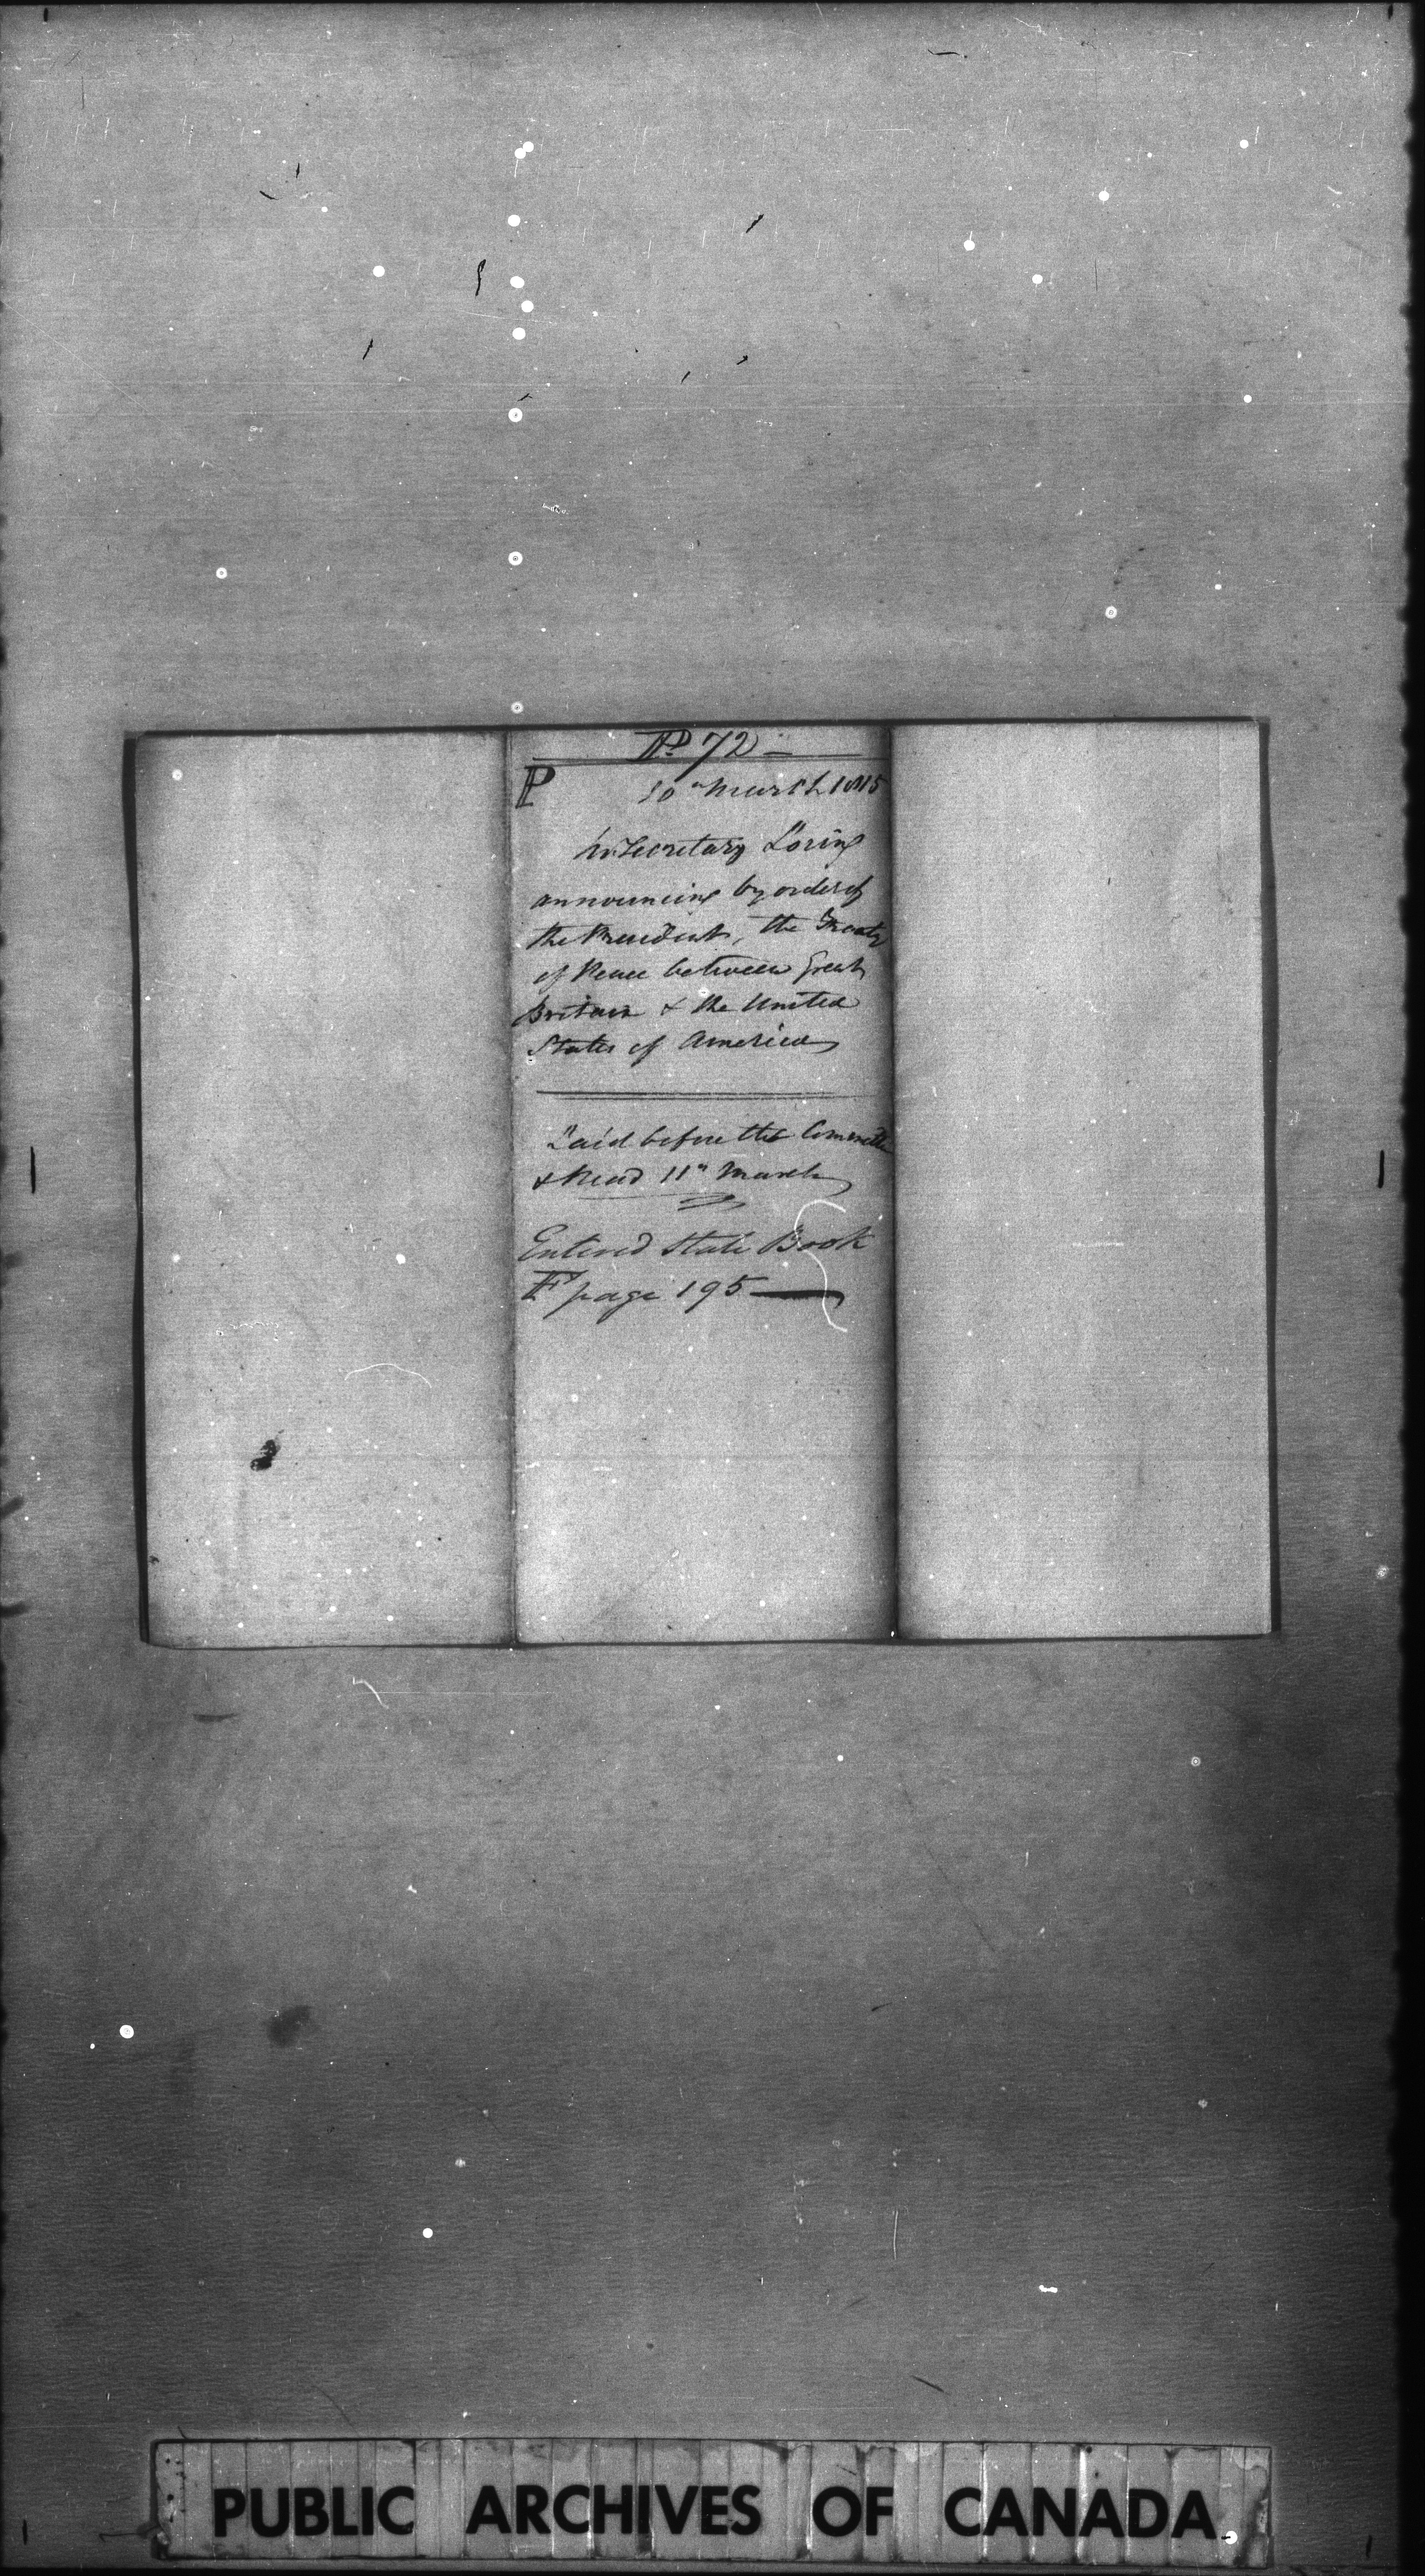 No 72 —
P
10th March 1815
Mr Secretary Loring
announcing by order of
the President, the Treaty
of Peace between Great
Britain & the United
States of America
Laid before the Committee
& Read 11th March
Entered State Book
F page 195 —
PUBLIC ARCHIVES OF CANADA